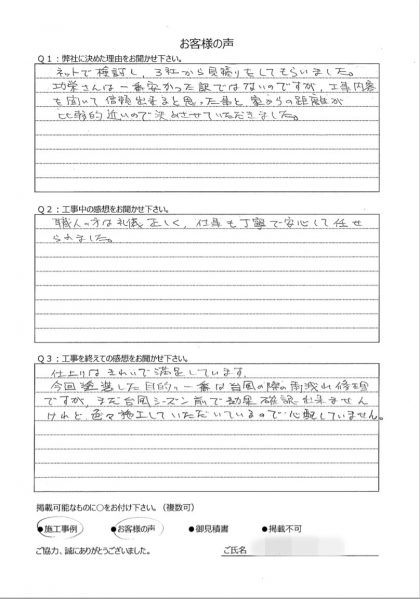 お客様の声
Q1：弊社に決めた理由をお聞かせ下さい。
ネットで検討し、3社から見積りをしてもらいました。
功栄さんは一番安かった訳ではないのですが、工事内容
を聞いて信頼出来ると思った事と、家からの距離が
比較的近いので決めさせていただきました。
Q2：工事中の感想をお聞かせ下さい。
職人の方は礼儀正しく、仕事も丁寧で安心して任せ
られました。
Q3：工事を終えての感想をお聞かせ下さい。
仕上りはきれいで満足しています。
今回塗装した目的の一番は台風の際の雨漏れ修理
ですが、まだ台風シーズン前で効果確認出来ません
けれど、色々施工していただいているので心配していません。
掲載可能なものに○をお付け下さい。（複数可）
●施工事例 ●お客様の声 ●御見積書 ●掲載不可
ご協力、誠にありがとうございました。 ご氏名